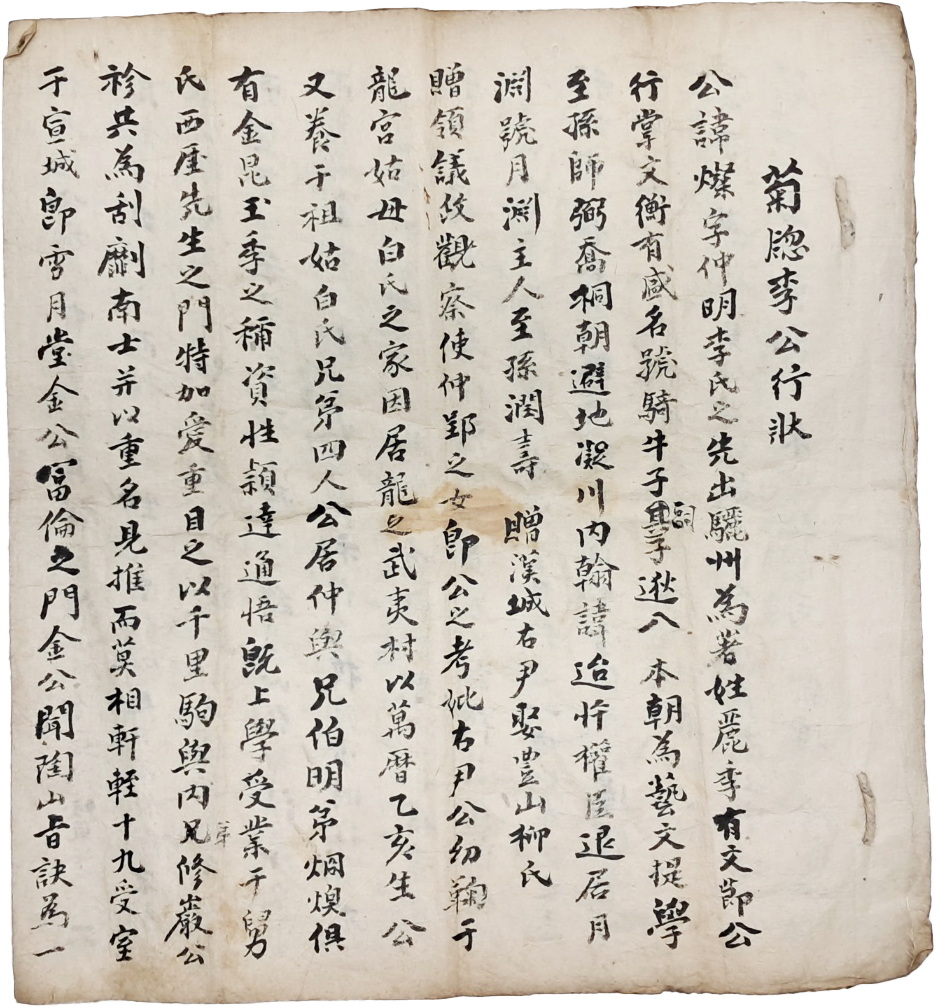 菊牕李公行狀
公諱燦字仲明李氏之先出驪州為著姓麗季有文節公
行掌文衡有盛名號騎牛子其子詞逖入 本朝為藝文提學
至孫師弼喬桐朝避地凝川內翰諱迨忤權臣退居月
淵號月淵主人至孫潤壽 贈漢城右尹娶豊山柳氏
贈領議政觀察使仲郢之女即公之考妣右尹公幼鞠于
龍宮姑母白氏之家因居龍之武夷村以萬曆乙亥生公
又養于祖姑白氏兄弟四人公居仲與兄伯明弟烱煥俱
有金昆玉季之稱資性穎達通悟旣上學受業于舅
氏西厓先生之門特加愛重目之以千里駒與內兄弟修巖公
袗共為刮劘南士并以重名見推而莫相軒輊十九受室
于宣城即雪月堂金公富倫之門金公聞陶山旨訣為一